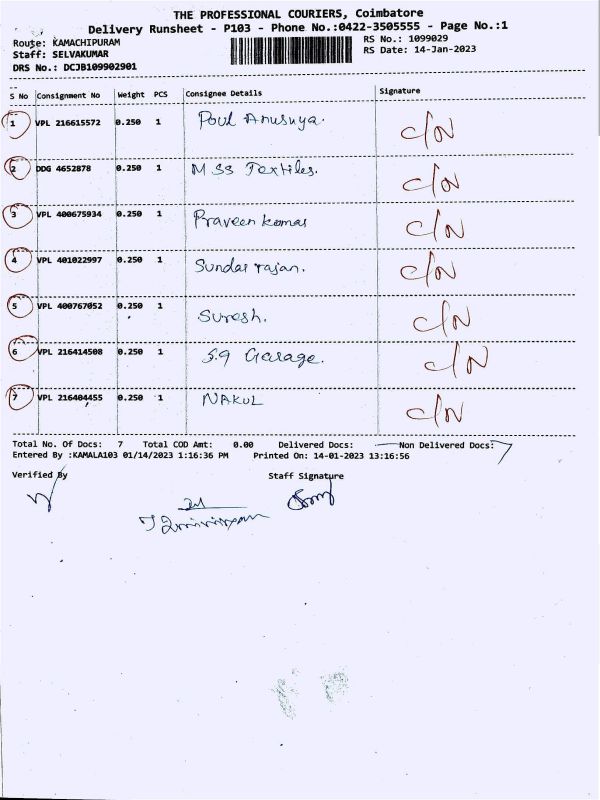 THE PROFESSIONAL COURIERS, Coimbatore
Delivery Runsheet - P103 - Phone No.:0422-3505555 - Page No.:1
Route: KAMACHIPURAM RS No.: 1099029
Staff: SELVAKUMAR RS Date: 14-Jan-2023
DRS No.: DCJB109902901
S No Consignment No Weight PCS Consignee Details Signature
1 VPL 216615572 0.250 1 Poul Anusuya. C/N
2 DDG 4652878 0.250 1 M SS Textiles. C/N
3 VPL 400675934 0.250 1 Praveen kumar C/N
4 VPL 401022997 0.250 1 Sundar rajan. C/N
5 VPL 400767052 0.250 1 Suresh. C/N
6 VPL 216414508 0.250 1 S.g Garage. C/N
7 VPL 216404455 0.250 1 NAKUL C/N
Total No. Of Docs: 7 Total COD Amt: 0.00 Delivered Docs: — Non Delivered Docs: 7
Entered By :KAMALA103 01/14/2023 1:16:36 PM Printed On: 14-01-2023 13:16:56
Verified By Staff Signature